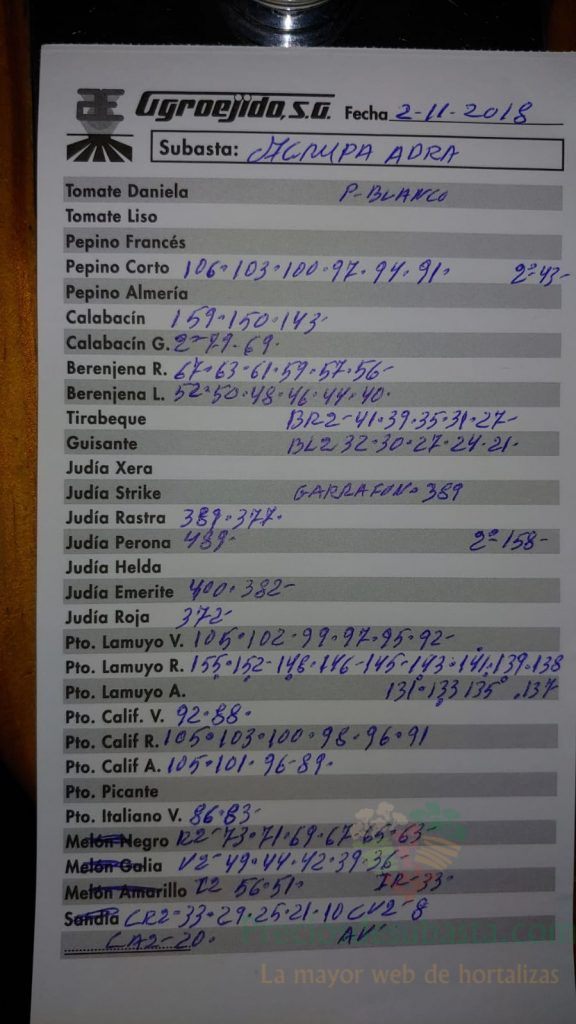 Agroejido, S.A. Fecha 2-11-2018
Subasta: AGRUPA ADRA
Tomate Daniela P-BLANCO
Tomate Liso
Pepino Francés
Pepino Corto 106-103-100-97-94-91- 2ª43-
Pepino Almería
Calabacín 159-150-143-
Calabacín G. 2ª-79-69-
Berenjena R. 67-63-61-59-57-56-
Berenjena L. 52-50-48-46-44-40-
Tirabeque BR2-41-39-35-31-27-
Guisante BL2 32-30-27-24-21-
Judía Xera
Judía Strike GARRAFON-389
Judía Rastra 389-377-
Judía Perona 489- 2ª158-
Judía Helda
Judía Emerite 400-382-
Judía Roja 372-
Pto. Lamuyo V. 105-102-99-97-95-92-
Pto. Lamuyo R. 155-152-148-146-145-143-141-139-138
Pto. Lamuyo A. 131-133 135 -137
Pto. Calif. V. 92-88-
Pto. Calif R. 105-103-100-98-96-91
Pto. Calif A. 105-101-96-89-
Pto. Picante
Pto. Italiano V. 86-83-
Melón Negro R2-73-71-69-67-65-63-
Melón Galia V2-49-44-42-39-36-
Melón Amarillo I2 56-51- IR-33-
Sandía CR2-33-29-25-21-10 CV2-8
CA2-20- AV
La mayor web de hortalizas